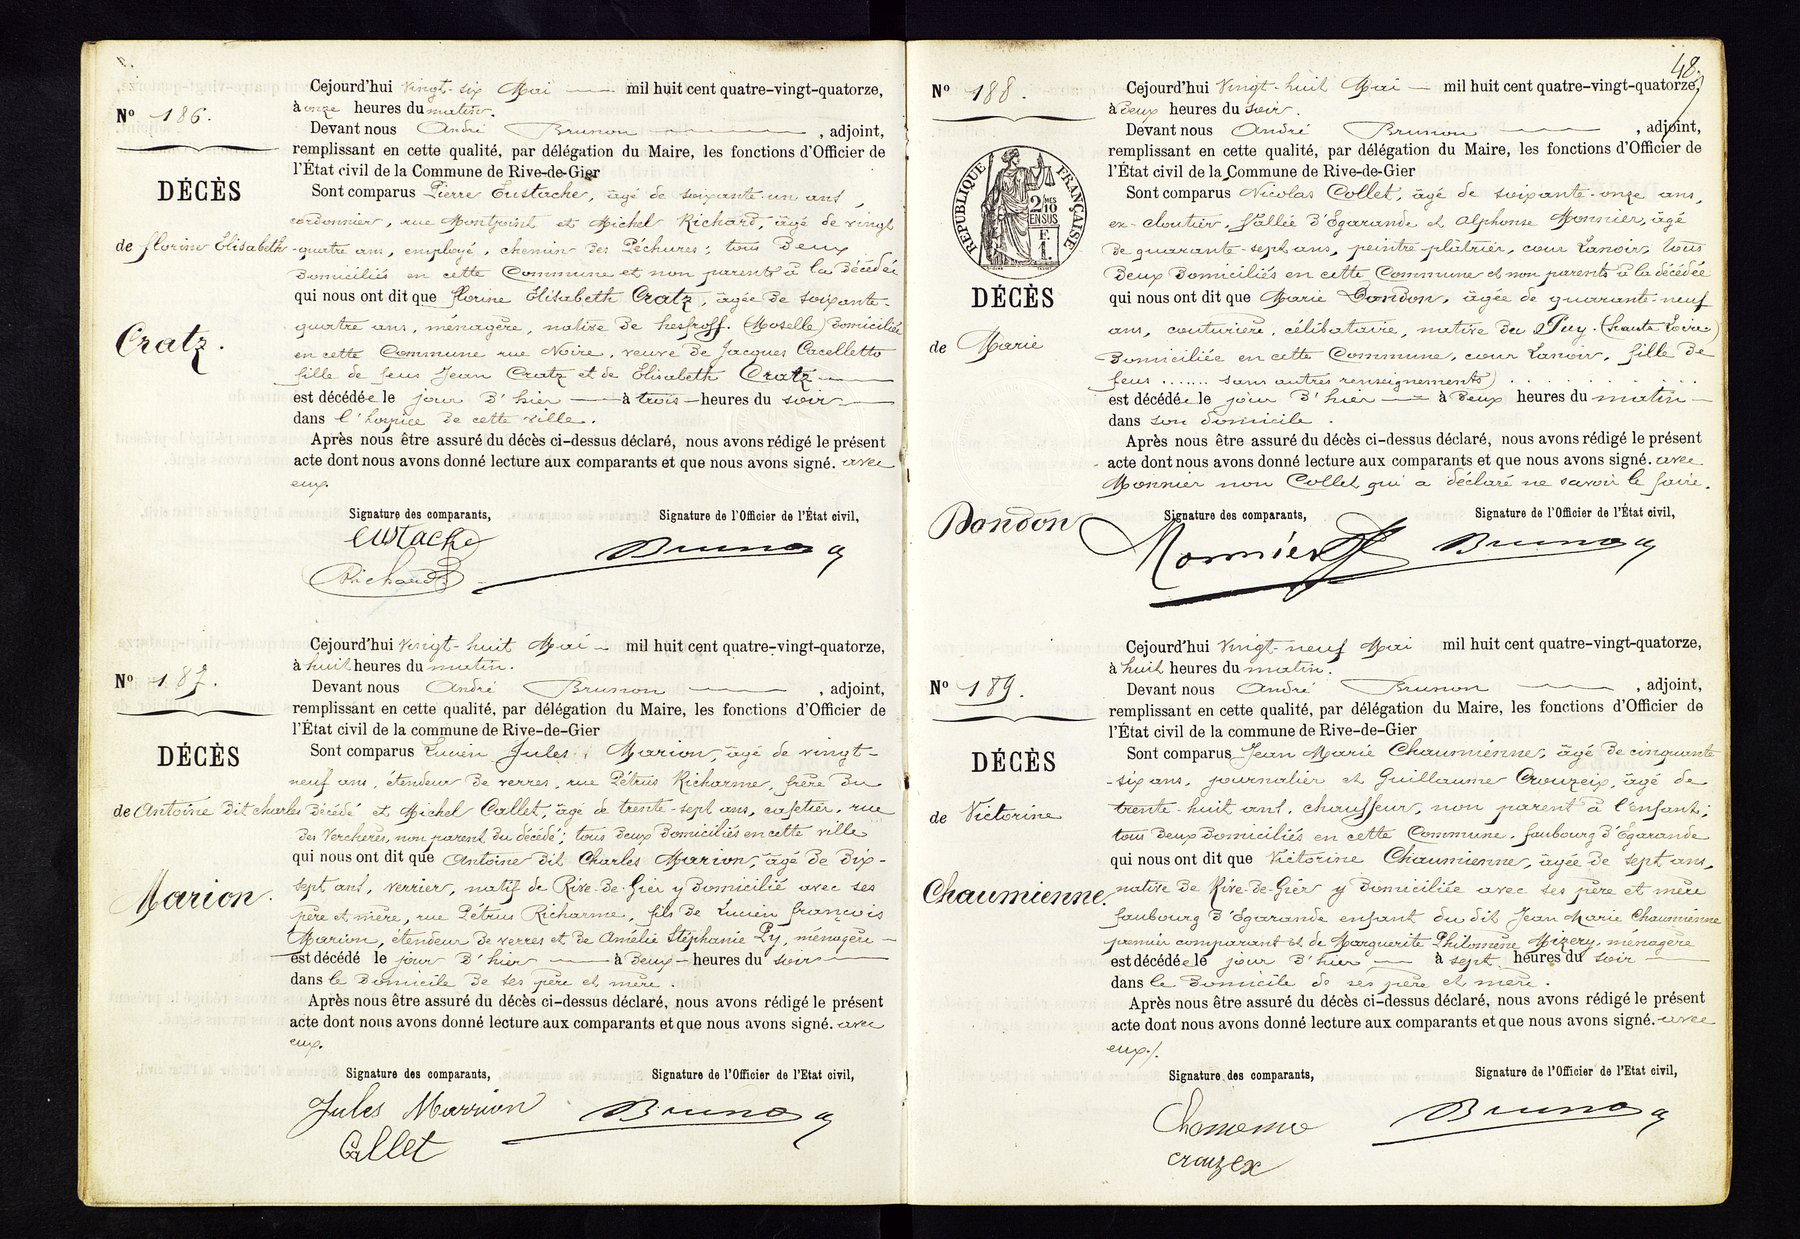 Nº 186.
DÉCÈS
de florine Elisabeth
Cratz.
Cejourd'hui vingt-six Mai mil huit cent quatre-vingt-quatorze,
à onze heures du matin.
Devant nous André Brunon , adjoint,
remplissant en cette qualité, par délégation du Maire, les fonctions d'Officier de
l'État civil de la Commune de Rive-de-Gier
Sont comparus Pierre Eustache, âgé de soixante-un ans,
cordonnier, rue Montpoint et Michel Richard, âgé de vingt
quatre ans, employé, chemin des Pêchures; tous deux
domiciliés en cette Commune et non parents à la décédée
qui nous ont dit que florine Elisabeth Cratz, âgée de soixante-
quatre ans, ménagère, native de hesfroff. (Moselle) domiciliée
en cette Commune rue Noire, veuve de Jacques Cacelletto
fille de feus Jean Cratz et de Elisabeth Cratz
est décédée le jour d'hier à trois heures du soir
dans l'hospice de cette ville.
Après nous être assuré du décès ci-dessus déclaré, nous avons rédigé le présent
acte dont nous avons donné lecture aux comparants et que nous avons signé. avec
eux.
Signature des comparants, Signature de l'Officier de l'État civil,
eustache Brunon
Richard
Nº 187.
DÉCÈS
de Antoine dit charles
Marion.
Cejourd'hui vingt-huit Mai mil huit cent quatre-vingt-quatorze,
à huit heures du matin.
Devant nous André Brunon , adjoint,
remplissant en cette qualité, par délégation du Maire, les fonctions d'Officier de
l'État civil de la commune de Rive-de-Gier
Sont comparus Lucien Jules Marion, âgé de vingt-
neuf ans, étendeur de verres, rue Pétrus Richarme, frère du
décédé et Michel Callet, âgé de trente-sept ans, cafetier, rue
des Vercheres, non parent du décédé; tous deux domiciliés en cette ville
qui nous ont dit que Antoine dit Charles Marion, âgé de dix-
sept ans, verrier, natif de Rive-de-Gier y domicilié avec ses
père et mère, rue Pétrus Richarme, fils de Lucien françois
Marion, étendeur de verres et de Amélie Stéphanie Py, ménagère
est décédé le jour d'hier à deux heures du soir
dans le domicile de ses père et mère.
Après nous être assuré du décès ci-dessus déclaré, nous avons rédigé le présent
acte dont nous avons donné lecture aux comparants et que nous avons signé. avec
eux.
Signature des comparants, Signature de l'Officier de l'Etat civil,
Jules Marrion Brunon
Callet
48.
Nº 188.
RÉPUBLIQUE FRANÇAISE
2/10 MES
EN SUS
F.
1.
DÉCÈS
de Marie
Dondon
Cejourd'hui vingt-huit Mai mil huit cent quatre-vingt-quatorze,
à deux heures du soir.
Devant nous André Brunon , adjoint,
remplissant en cette qualité, par délégation du Maire, les fonctions d'Officier de
l'État civil de la Commune de Rive-de-Gier
Sont comparus Nicolas Collet, âgé de soixante-onze ans,
ex-cloutier, Vallée d'Egarande et Alphonse Monnier, âgé
de quarante-sept ans, peintre plâtrier, cour Lanoir, tous
deux domiciliés en cette Commune et non parents à la décédée
qui nous ont dit que Marie Dondon, âgée de quarante-neuf
ans, couturière, célibataire, native du Puy. (haute Loire)
domiciliée en cette Commune, cour Lanoir, fille de
feus ....... sans autres renseignements)
est décédée le jour d'hier à deux heures du matin
dans son domicile.
Après nous être assuré du décès ci-dessus déclaré, nous avons rédigé le présent
acte dont nous avons donné lecture aux comparants et que nous avons signé. avec
Monnier non Collet qui a déclaré ne savoir le faire.
Signature des comparants, Signature de l'Officier de l'État civil,
Monnier Brunon
Nº 189.
DÉCÈS
de Victorine
Chaumienne.
Cejourd'hui vingt-neuf Mai mil huit cent quatre-vingt-quatorze,
à huit heures du matin.
Devant nous André Brunon , adjoint,
remplissant en cette qualité, par délégation du Maire, les fonctions d'Officier de
l'État civil de la commune de Rive-de-Gier
Sont comparus Jean Marie Chaumienne, âgé de cinquante
-six ans, journalier et Guillaume Crouzeix, âgé de
trente-huit ans, chauffeur, non parent à l'enfant;
tous deux domiciliés en cette Commune, faubourg d'Egarande
qui nous ont dit que Victorine Chaumienne, âgée de sept ans,
native de Rive-de-Gier y domiciliée avec ses père et mère
faubourg d'Egarande enfant du dit Jean Marie Chaumienne
premier comparant et de Marguerite Philomène Mizery, ménagère
est décédée le jour d'hier à sept heures du soir
dans le domicile de ses père et mère.
Après nous être assuré du décès ci-dessus déclaré, nous avons rédigé le présent
acte dont nous avons donné lecture aux comparants et que nous avons signé. avec
eux./.
Signature des comparants, Signature de l'Officier de l'Etat civil,
Brunon
crouzex